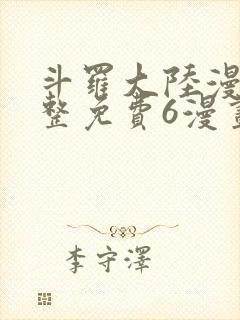 斗羅大陸漫
整免費6漫畫
李守澤